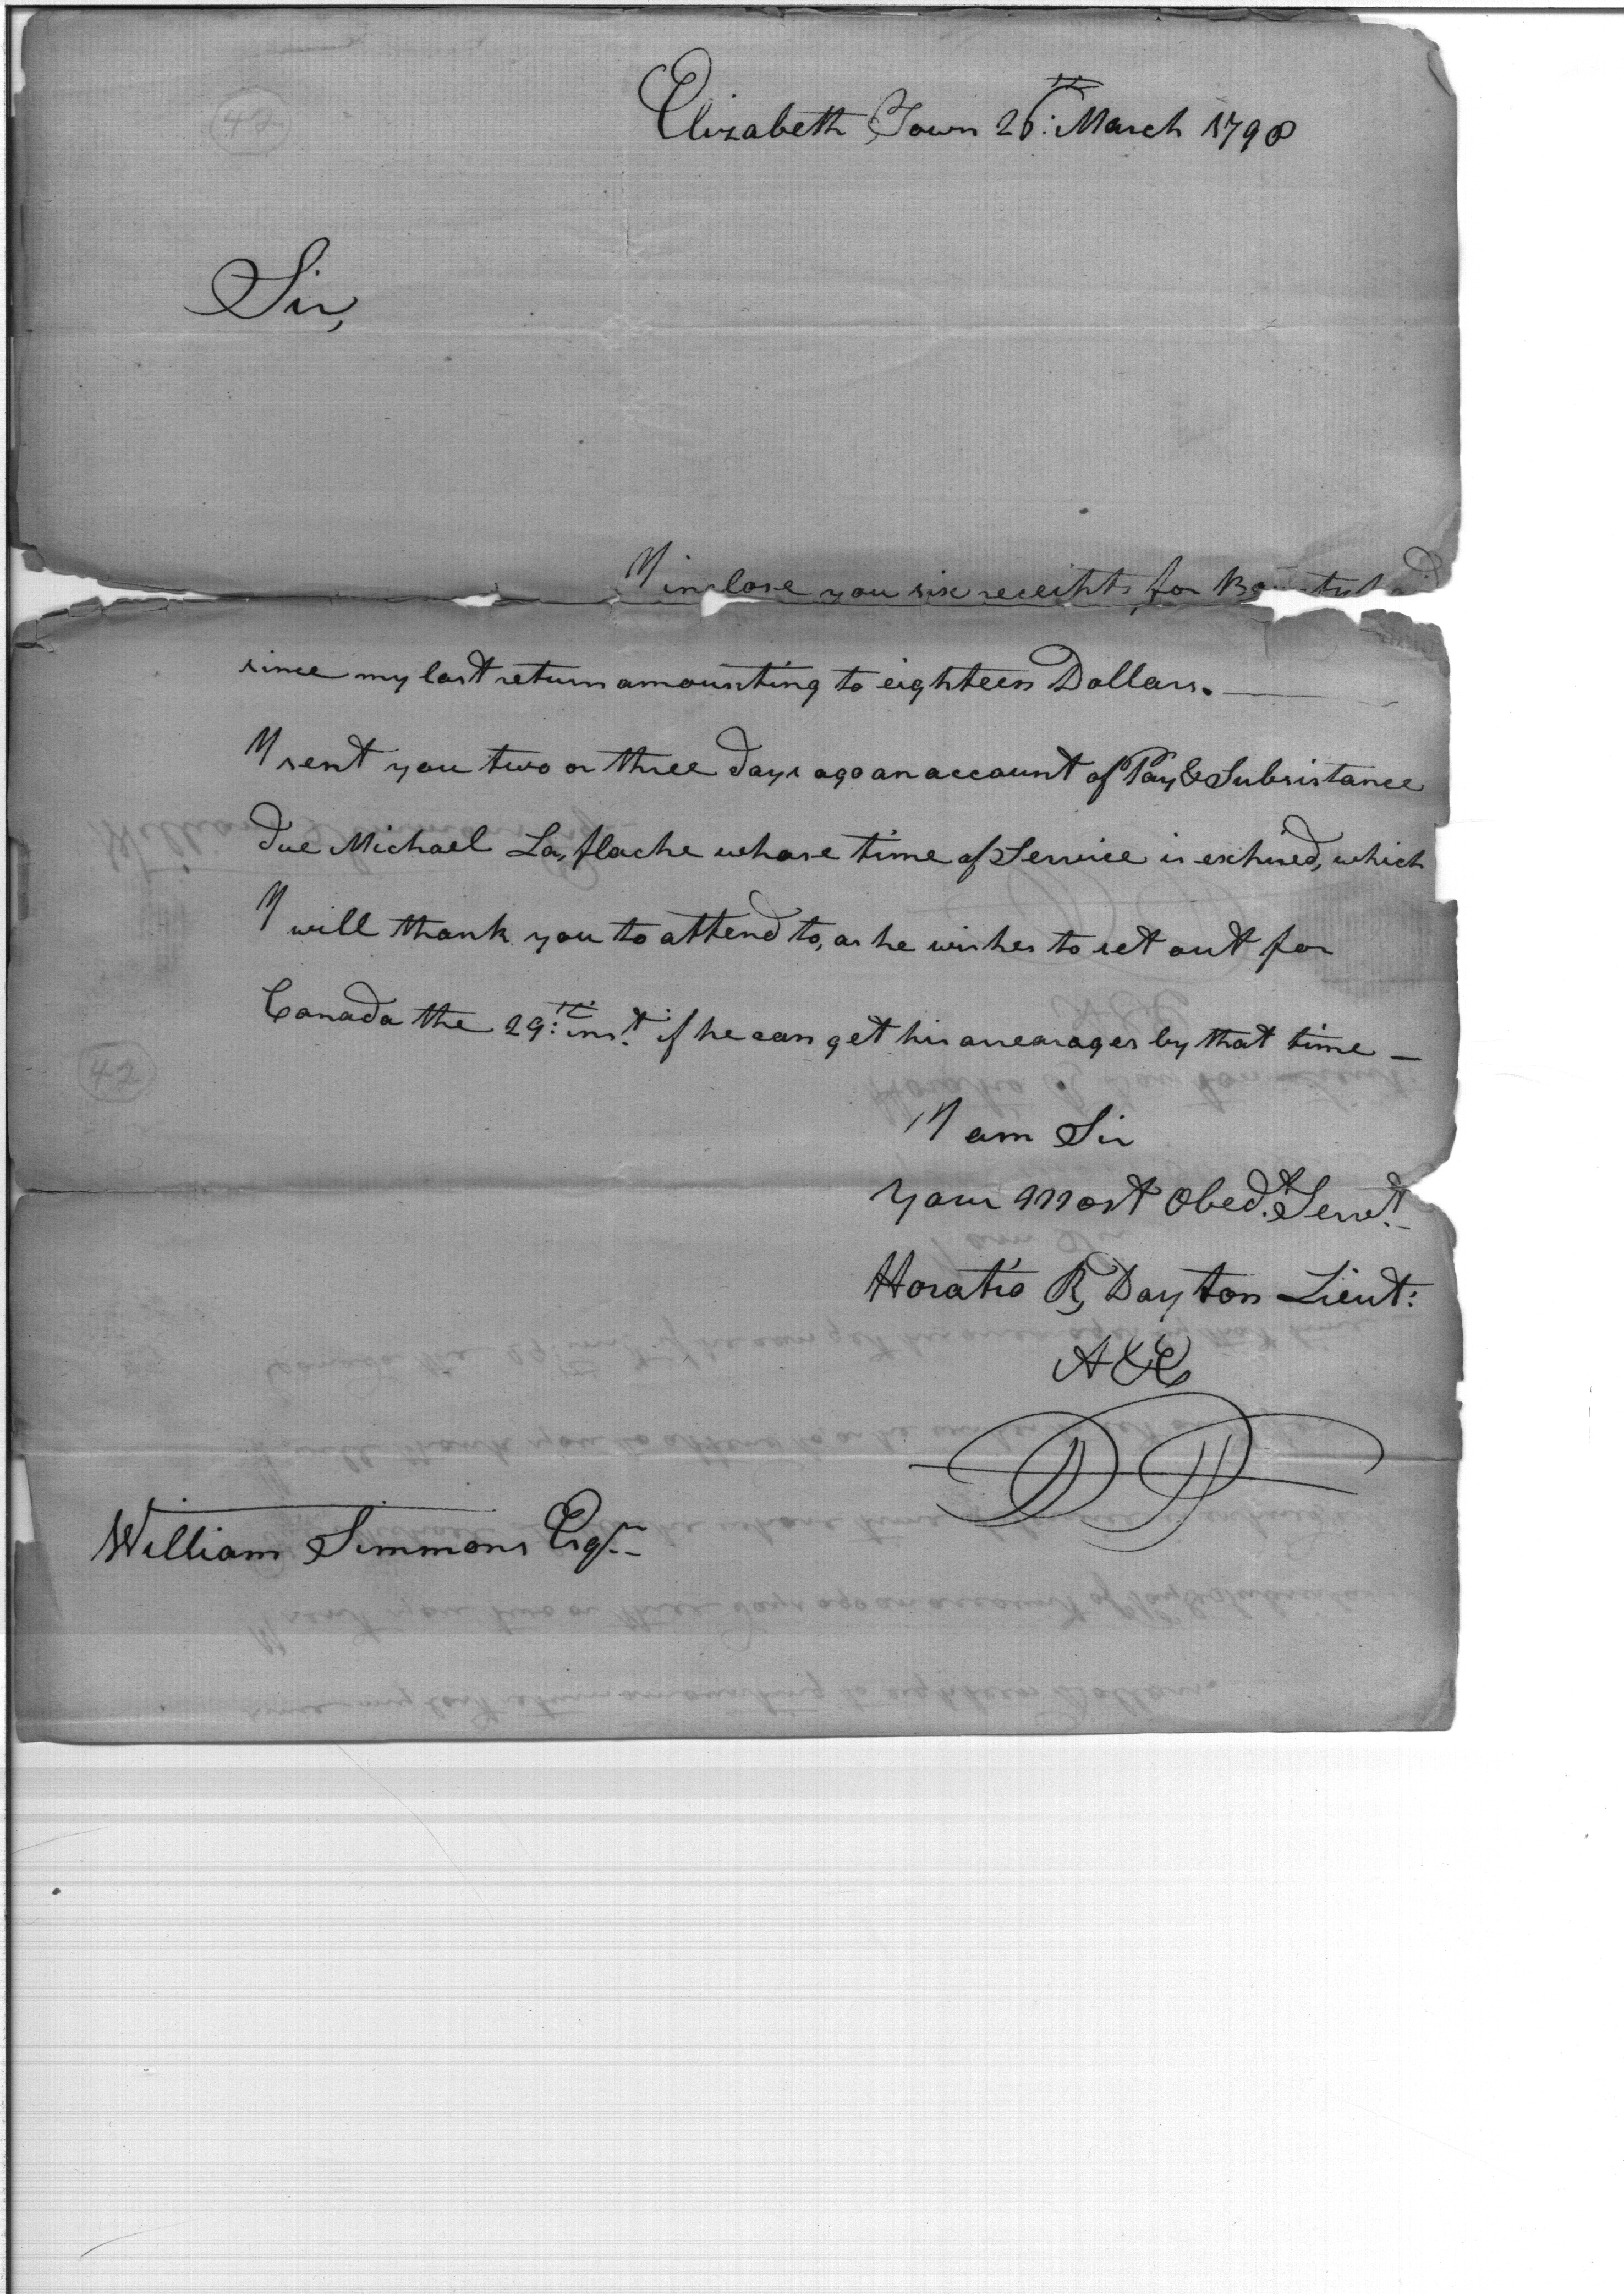 42
Elizabeth Town 26:th March 1798
Sir,
I inclose you six receipts for
since my last return amounting to eighteen Dollars.
I sent you two or three days ago an account of Pay & Subsistance
due Michael La,flache whose time of Service is expired, which
I will thank you to attend to, as he wishes to set out for
Canada the 29:th ins.t if he can get his arrearages by that time —
42
I am Sir
your Most Obed.t Serv.t
Horatio R, Dayton Lieut:
A&E
William Simmons Esqr.